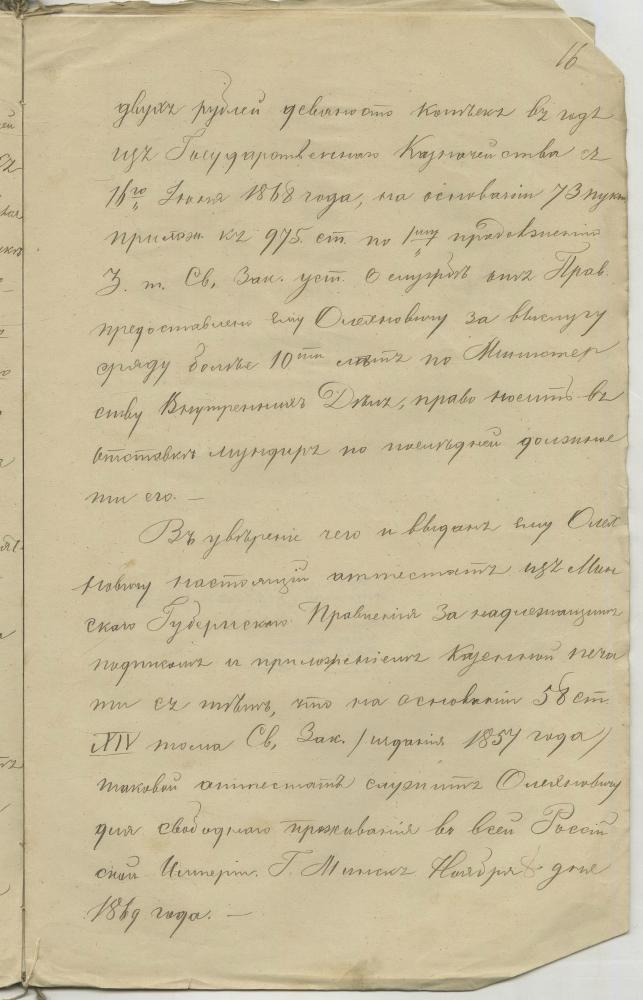 16
двухъ рублей девяносто копѣекъ въ годъ
изъ Государственнаго Казначейства съ
16го Іюня 1868 года, на основаніи 73 пунк
прилож. къ 975. ст. по 1му продолженію
3. т. Св. Зак. уст. о службѣ отъ Прав.
предоставлено ему Олехновичу за выслугу
сряду болѣе 10ти лѣтъ по Министер
ству Внутреннихъ Дѣлъ, право носить въ
отставкѣ мундиръ по послѣдней должнос
ти его. —
Въ увѣреніе чего и выданъ ему Олех
новичу настоящій аттестатъ изъ Мин
скаго Губернскаго Правленія за надлежащимъ
подписомъ и приложеніемъ казенной печа
ти съ тѣмъ, что на основаніи 58 ст.
XIV тома Св. Зак. /изданія 1857 года/
таковой аттестатъ служитъ Олехновичу
для свободнаго проживанія во всей Россій
ской Имперіи. Г. Минскъ Ноября дня
1869 года. —